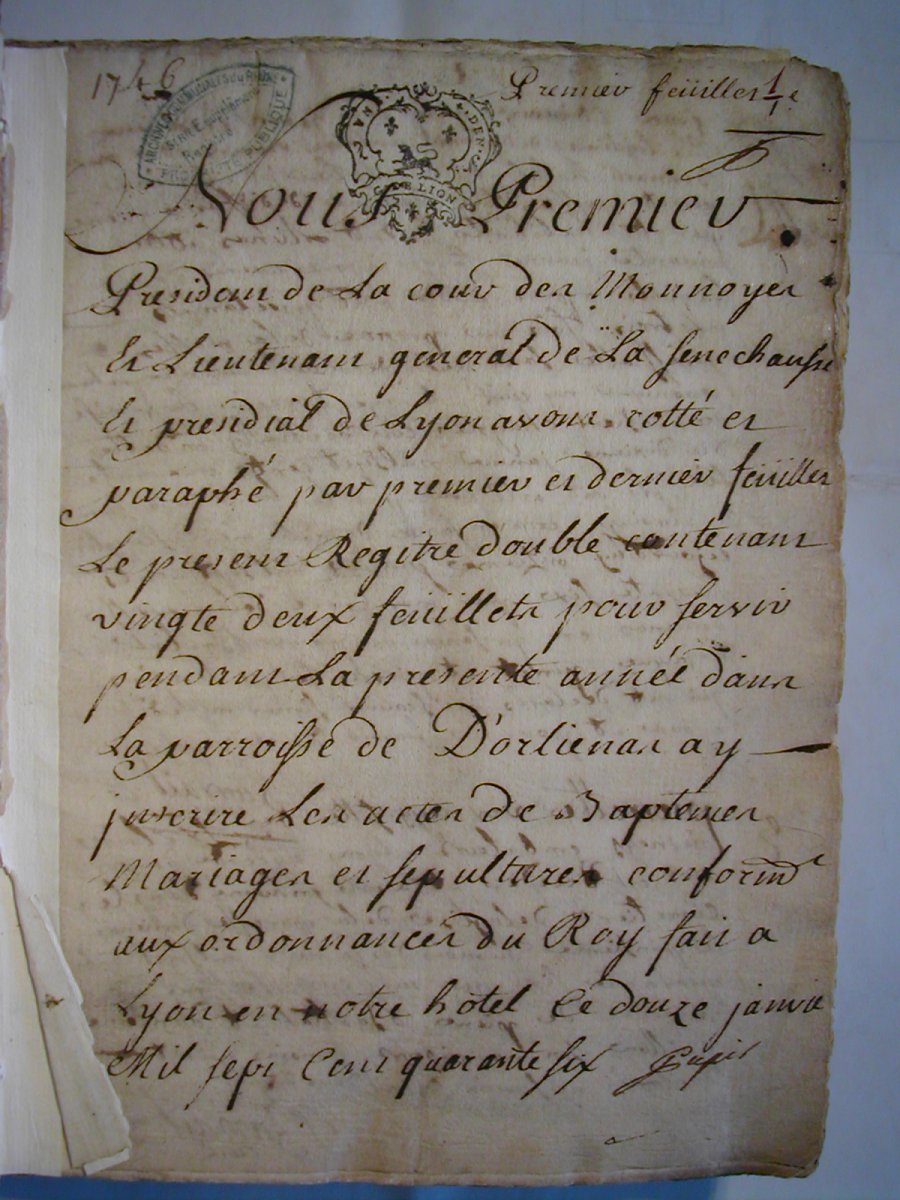 1746
ARCHIVES DEPARTEMENTALES DU RHONE
PROPRIETE PUBLIQUE
G. DE LION
Premier feüillet 1/1e
Nous Premier
President de La cour des Monnoyes
Et Lieutenant general de La senechaussee
Et presidial de Lyon avons cotté et
paraphé par premier et dernier feüillet
Le present Regitre double contenant
vingte deux feüillets pour servir
pendant La presente année dans
La parroisse de D'orlienas a y
jnscrire Les actes de Baptemes
Mariages et sepultures conformt
aux ordonnances du Roy fait a
Lyon en notre hôtel Ce douze janvie
Mil sept Cent quarante six Pupil